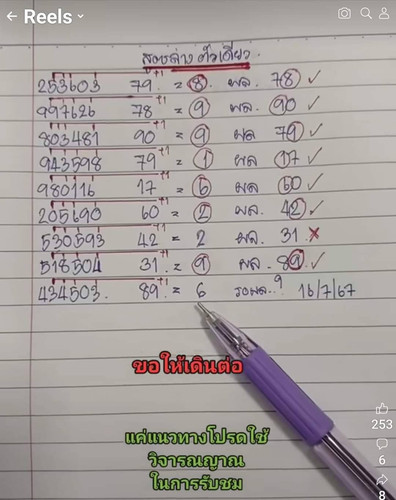 Reels
สองล่าง ตัวเดียว.
253603 79+1 = 8. ผล. 78 ✓
997626 78+1 = 9 ผล. 90 ✓
803481 90+1 = 9 ผล 79 ✓
943598 79+1 = 1 ผล 17 ✓
980116 17+1 = 6 ผล 60 ✓
205690 60+1 = 2 ผล. 42 ✓
530593 42+1 = 2 ผล. 31 ✗
518504 31+1 = 9 ผล. 89 ✓
434503. 89+1 = 6 รอผล.? 16/7/67
ขอให้เดินต่อ
แค่แนวทางโปรดใช้
วิจารณญาณ
ในการรับชม
253
6
8